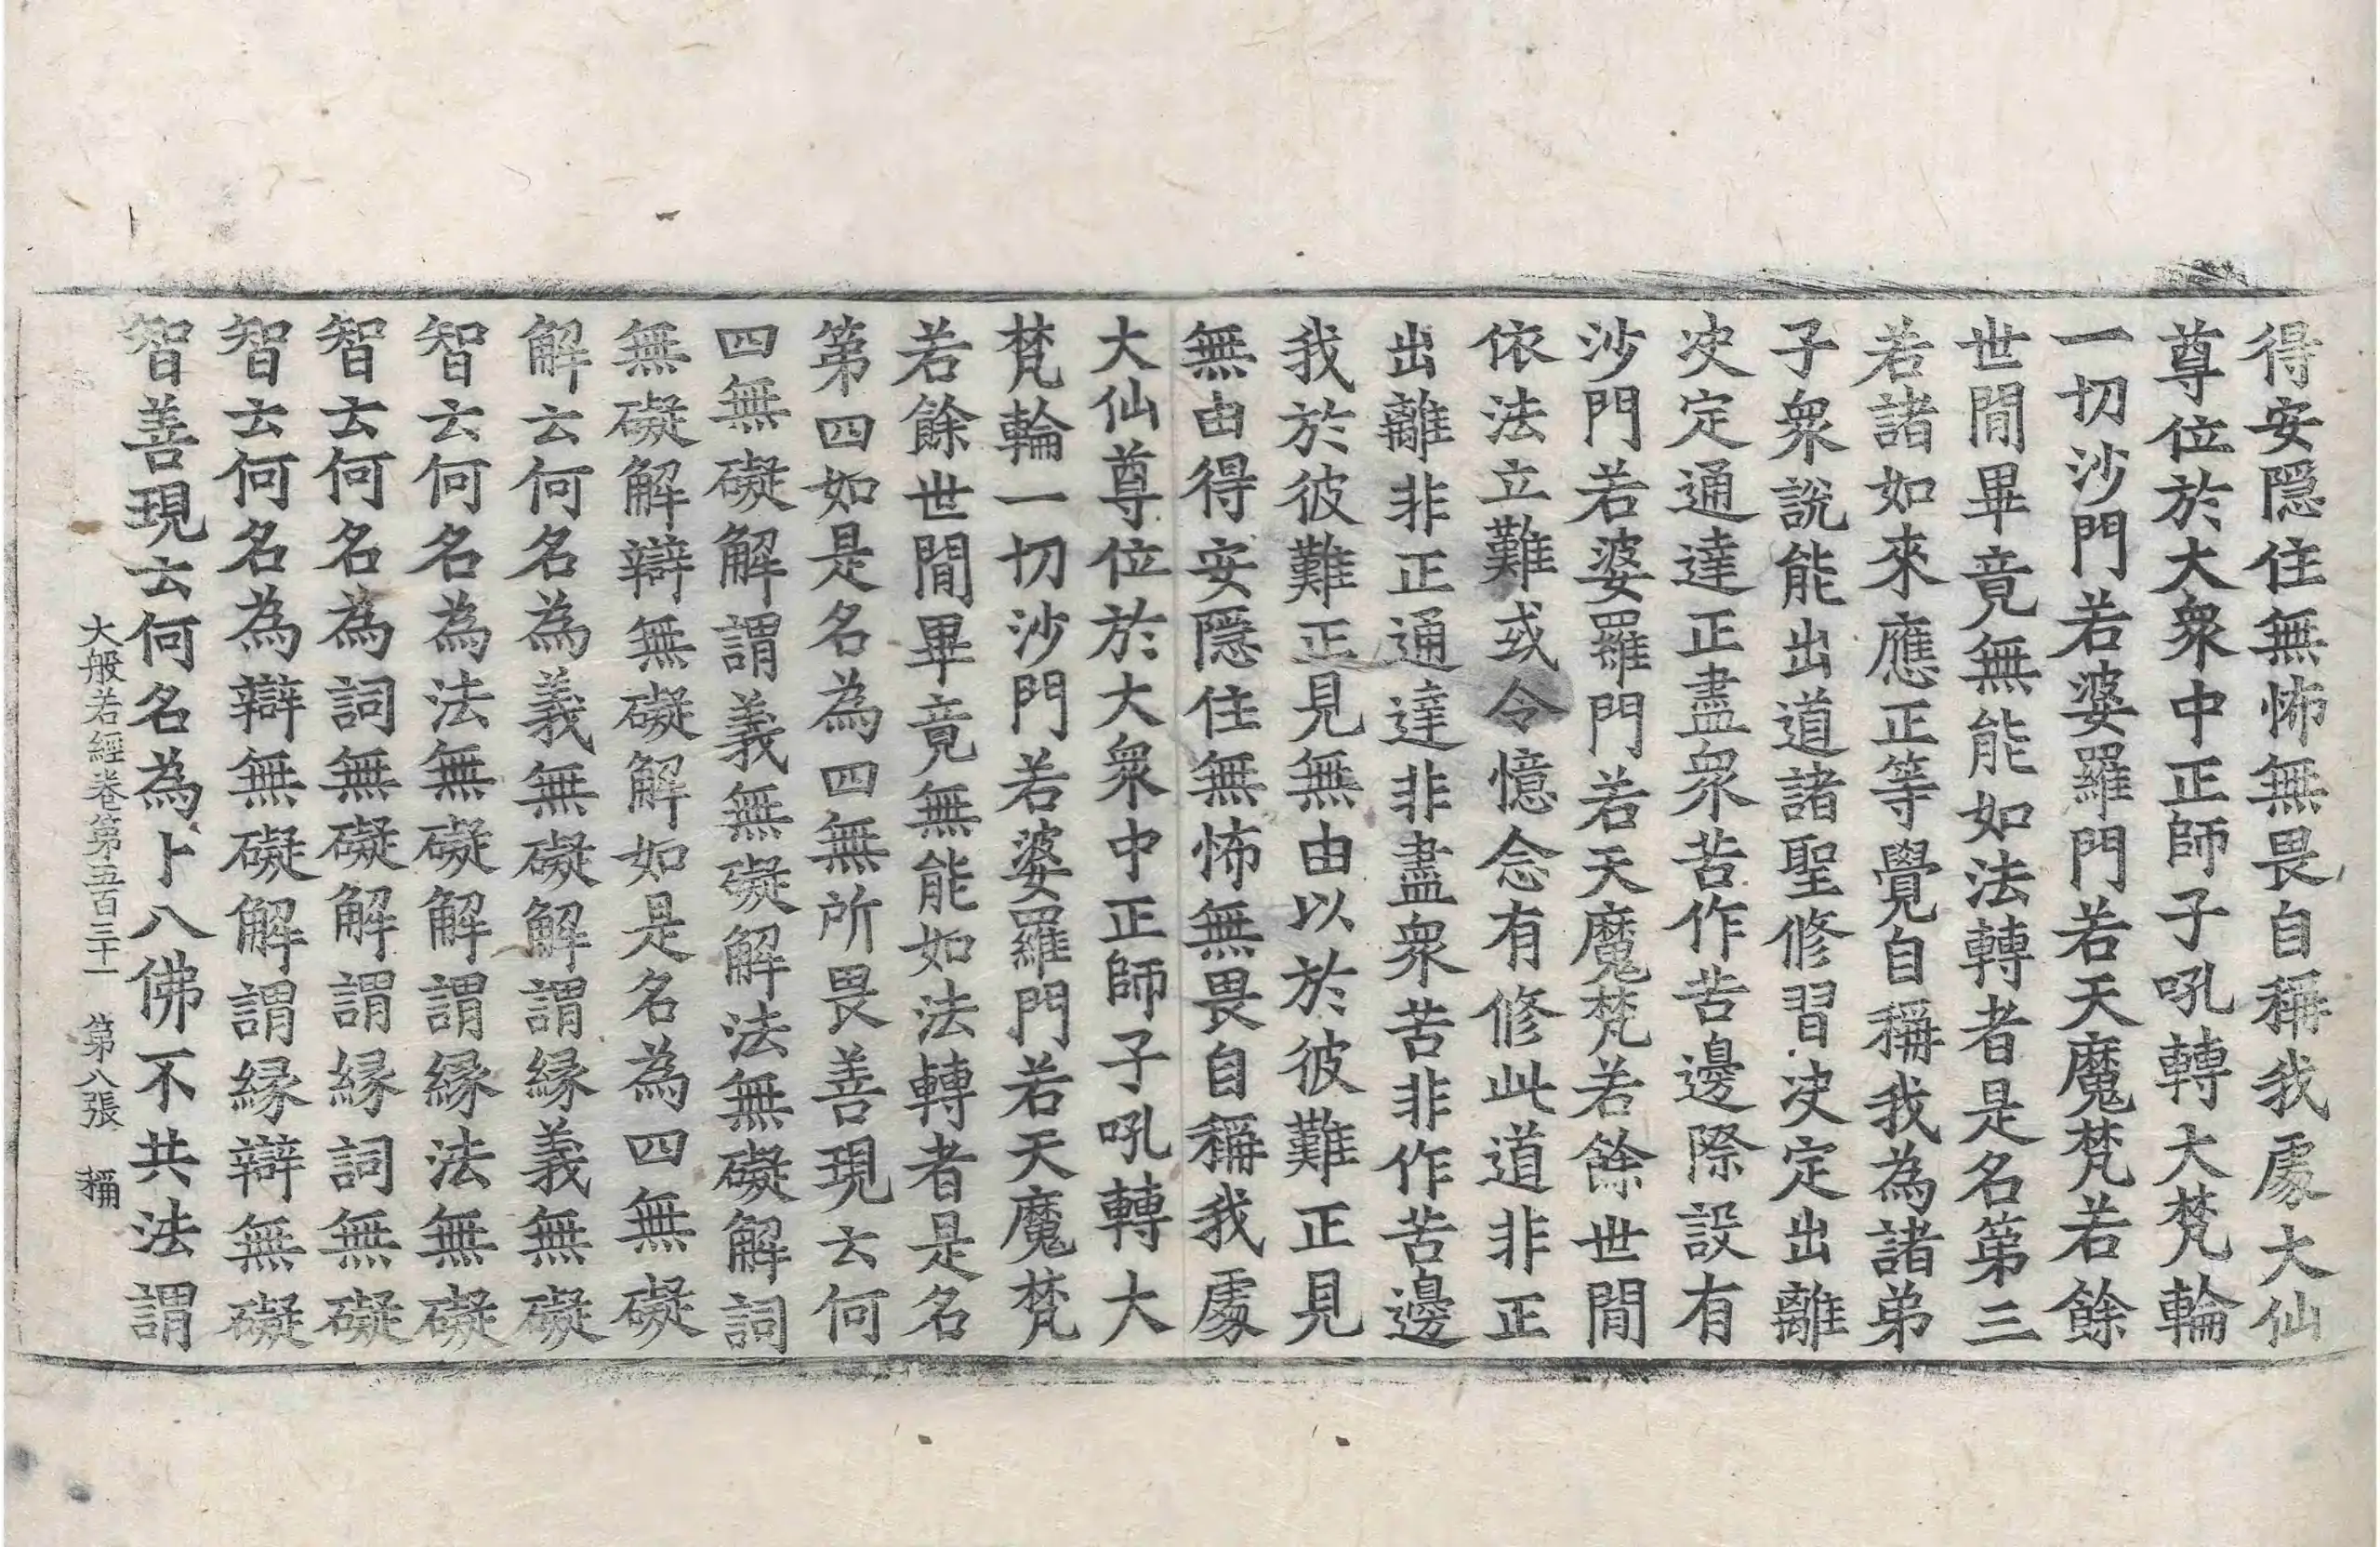 得安隱住無怖無畏自稱我處大仙
尊位於大衆中正師子吼轉大梵輪
一切沙門若婆羅門若天魔梵若餘
世間畢竟無能如法轉者是名第三
若諸如來應正等覺自稱我為諸弟
子衆說能出道諸聖修習决定出離
决定通達正盡衆苦作苦邊際設有
沙門若婆羅門若天魔梵若餘世間
依法立難或令憶念有修此道非正
出離非正通達非盡衆苦非作苦邊
我於彼難正見無由以於彼難正見
無由得安隱住無怖無畏自稱我處
大仙尊位於大衆中正師子吼轉大
梵輪一切沙門若婆羅門若天魔梵
若餘世間畢竟無能如法轉者是名
第四如是名為四無所畏善現云何
四無礙解謂義無礙解法無礙解詞
無礙解辯無礙解如是名為四無礙
解云何名為義無礙解謂縁義無礙
智云何名為法無礙解謂縁法無礙
智云何名為詞無礙解謂縁詞無礙
智云何名為辯無礙解謂縁辯無礙
智善現云何名為十八佛不共法謂
大般若經卷第五百三十一 第八張 稱